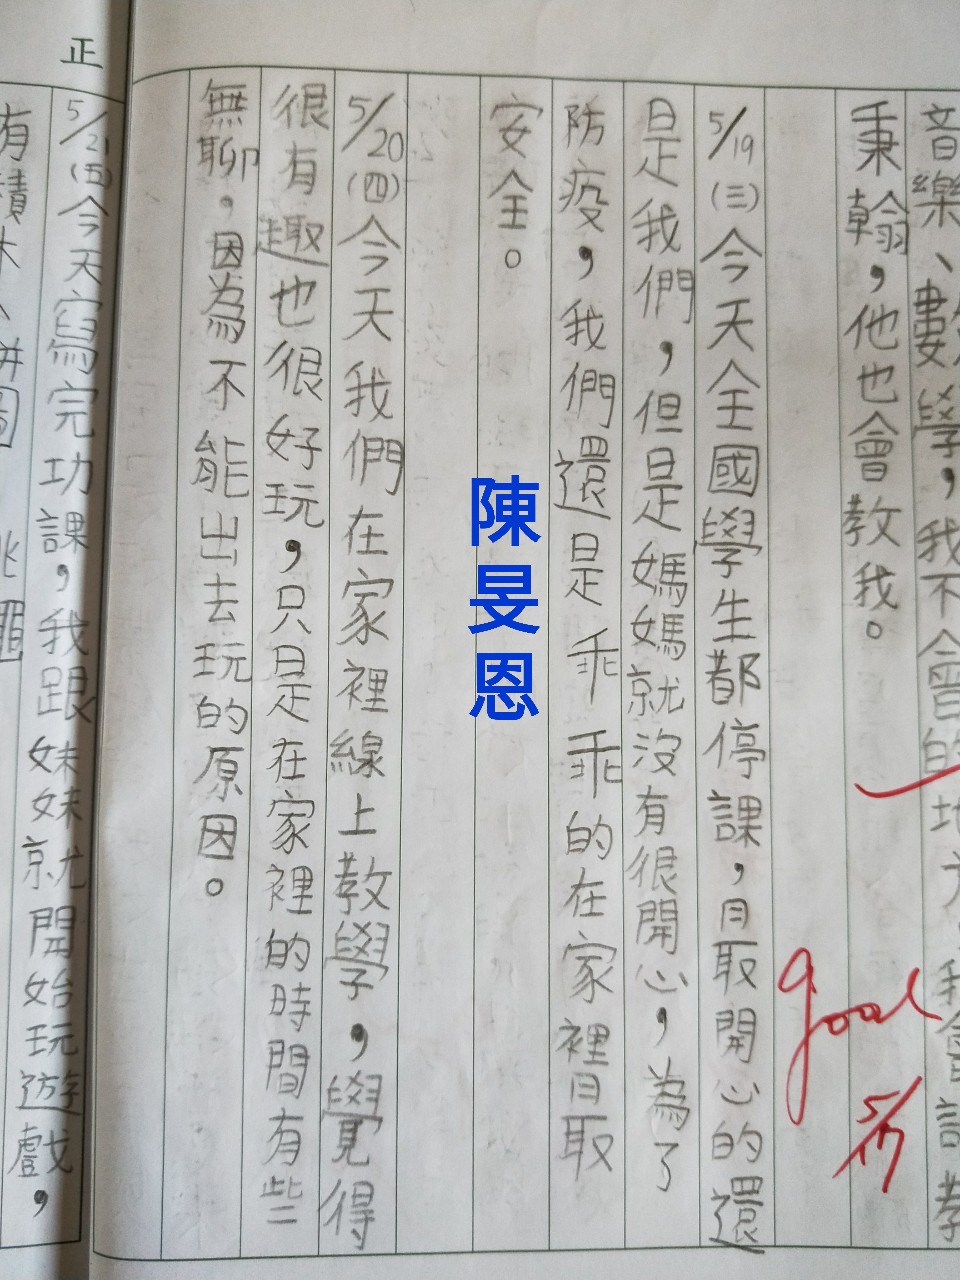 音樂、數學，我不會的地方
秉翰，他也會教我。
good
5/19(三)今天全國學生都停課，最開心的還
是我們，但是媽媽就沒有很開心，為了
防疫，我們還是乖乖的在家裡最
安全。
陳旻恩
5/20(四)今天我們在家裡線上教學，覺得
很有趣也很好玩，只是在家裡的時間有些
無聊。因為不能出去玩的原因。
正
5/21(五)今天寫完功課，我跟妹妹就開始玩遊戲，
有積木、拼圖